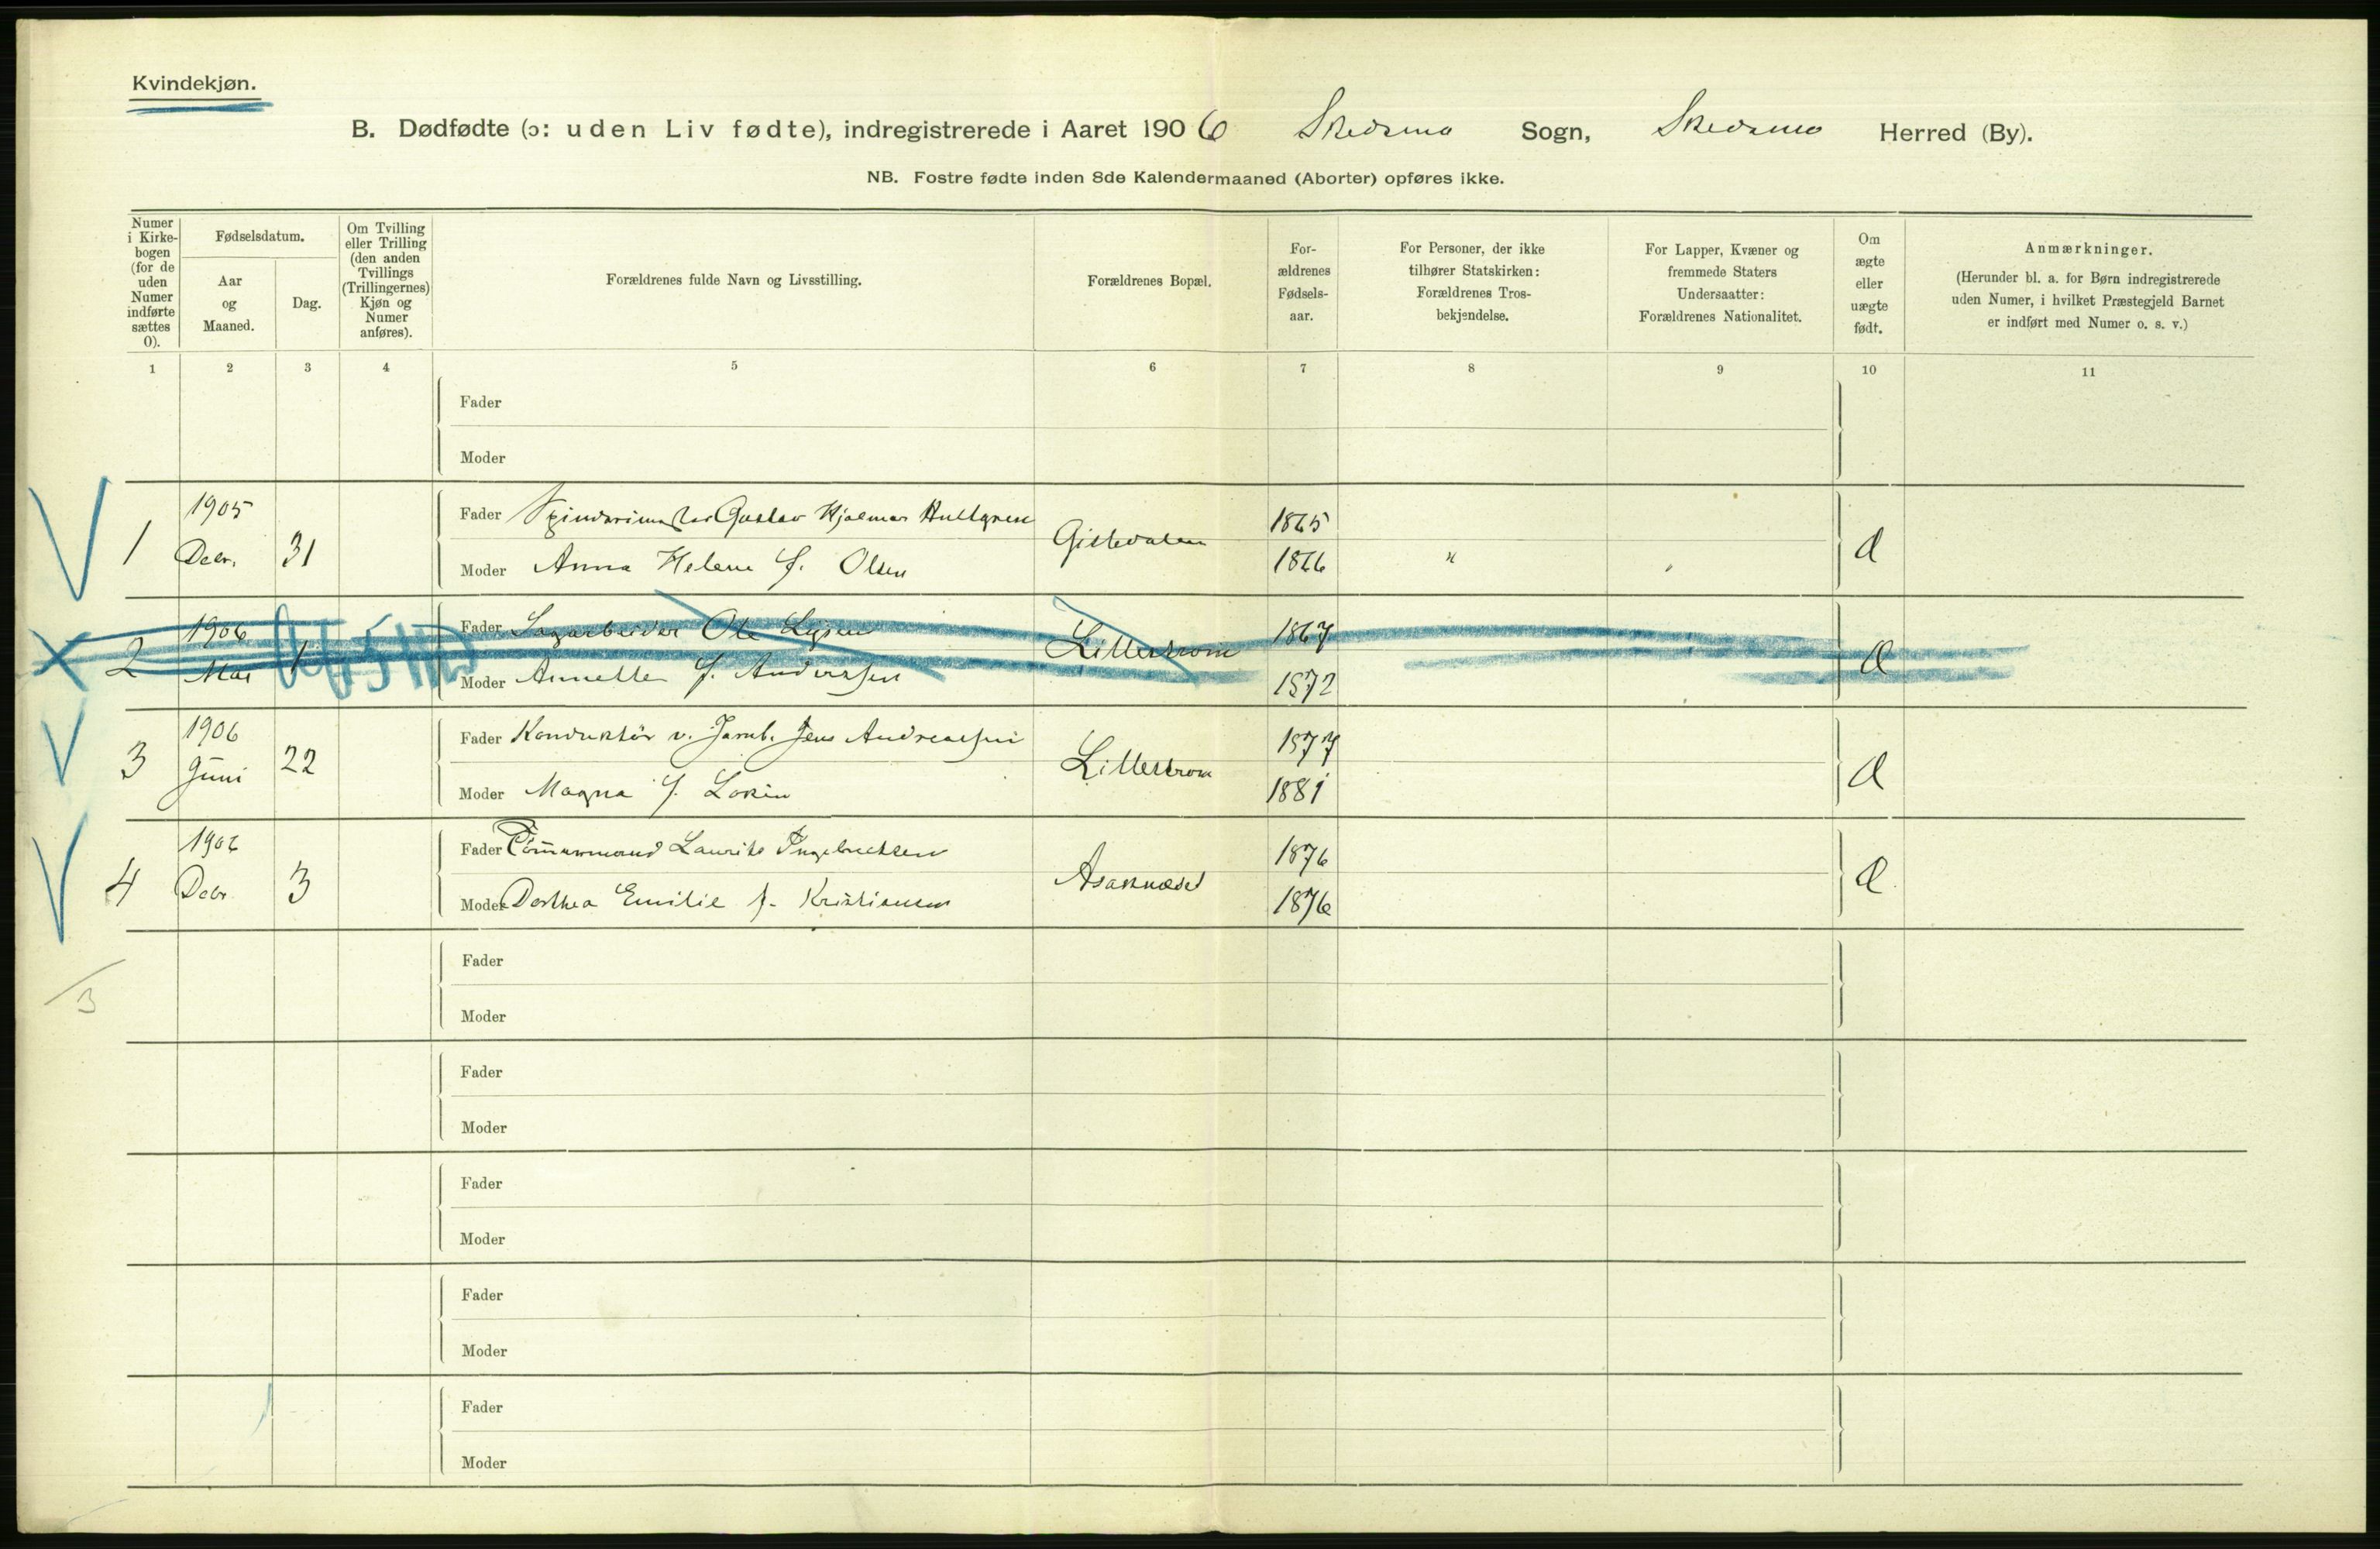 Kvindekjøn.
B. Dødfødte (ɔ: uden Liv fødte), indregistrerede i Aaret 1906 Skedsmo Sogn, Skedsmo Herred (By).
NB. Fostre fødte inden 8de Kalendermaaned (Aborter) opføres ikke.
Numer i Kirkebogen (for de uden Numer indførte sættes 0).
Fødselsdatum.
Aar og Maaned.
Dag.
Om Tvilling eller Trilling (den anden Tvillings (Trillingernes) Kjøn og Numer anføres).
Forældrenes fulde Navn og Livsstilling.
Forældrenes Bopæl.
For-ældrenes Fødsels-aar.
For Personer, der ikke tilhører Statskirken: Forældrenes Tros-bekjendelse.
For Lapper, Kvæner og fremmede Staters Undersaatter: Forældrenes Nationalitet.
Om ægte eller uægte født.
Anmærkninger.
(Herunder bl. a. for Børn indregistrerede uden Numer, i hvilket Præstegjeld Barnet er indført med Numer o. s. v.)
1 2 3 4 5 6 7 8 9 10 11
Fader
Moder
1 1905 Decbr. 31
Fader Gustav Hjalmar Hultgren 1865
Moder Anna Helene f. Olsen 1866
2 1906 Mai 1
Fader Sagarbeider Ole 1867
Lillestrøm
Moder Annette f. Anderssen 1872
3 1906 Juni 22
Fader Konduktör v. Jernb. Jens Andreassen 1877
Lillestrøm
Moder Magna f. 1881
4 1906 Decbr 3
Fader Tömmermand Laurits Ingebrethsen 1876
Asaknæset
Moder Dorthea Emilie f. Kristiansen 1876
Fader
Moder
3
Fader
Moder
Fader
Moder
Fader
Moder
Fader
Moder